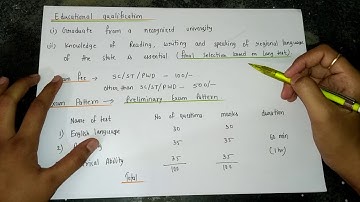 Educational qualification
(i) Graduate from a recognized university
(ii) Knowledge of Reading, writing and speaking of regional language
of the state is essential. (final selection based on lang test)
Fee → SC/ST/PWD - 100/-
other than SC/ST/PWD - 500/-
Exam Pattern → Preliminary Exam Pattern
Name of test No of questions marks duration
1) English language 30 30
2) 35 35 60 min
Ability 35 35 (1 hr)
Total 100 100